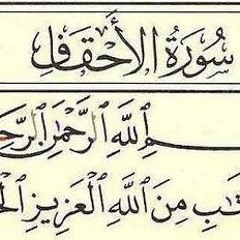 سُورَةُ الأَحْقَافِ
ـمِ ٱللَّهِ ٱلرَّحْمَٰنِ ٱلرَّحِـ
ـتَٰبِ مِنَ ٱللَّهِ ٱلْعَزِيزِ ٱلْحَـ